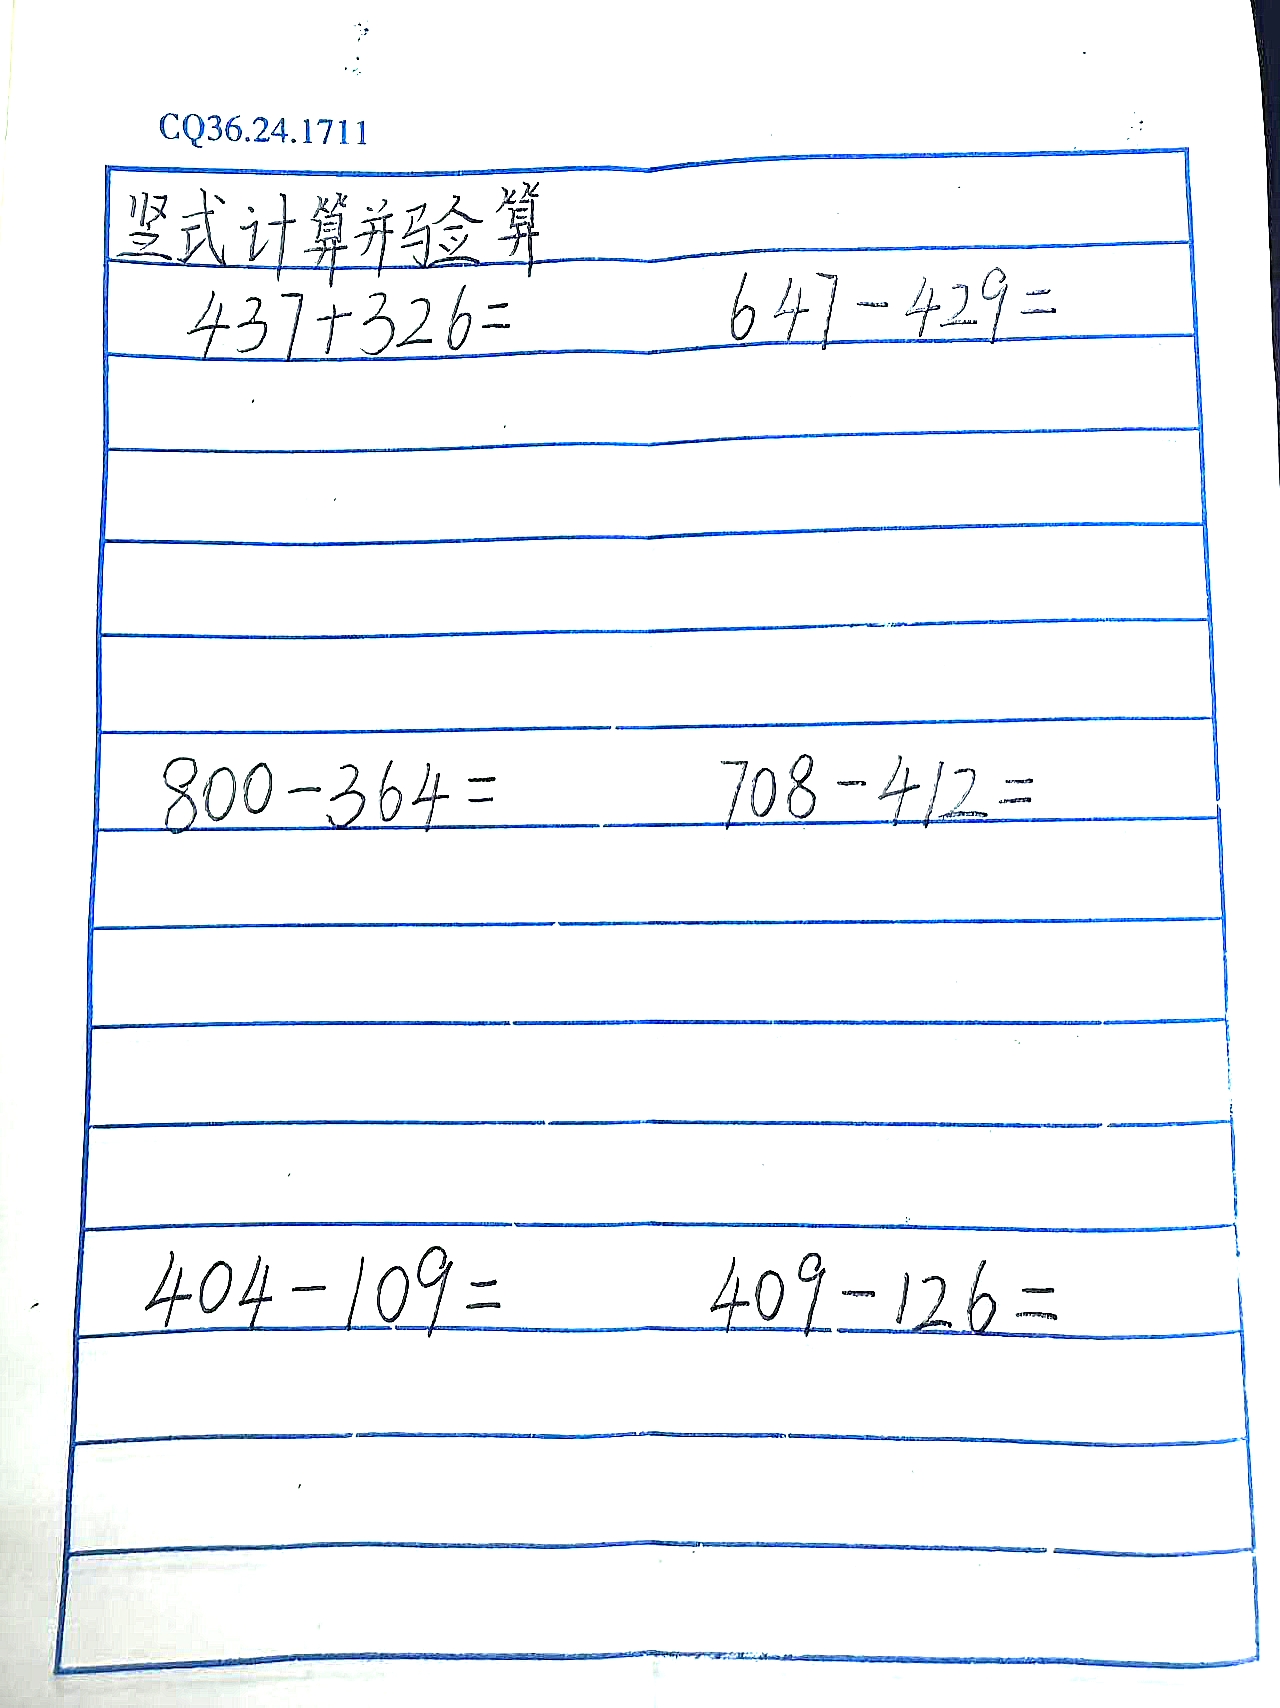 CQ36.24.1711
竖式计算并验算
437+326= 647-429=
800-364= 708-412=
404-109= 409-126=